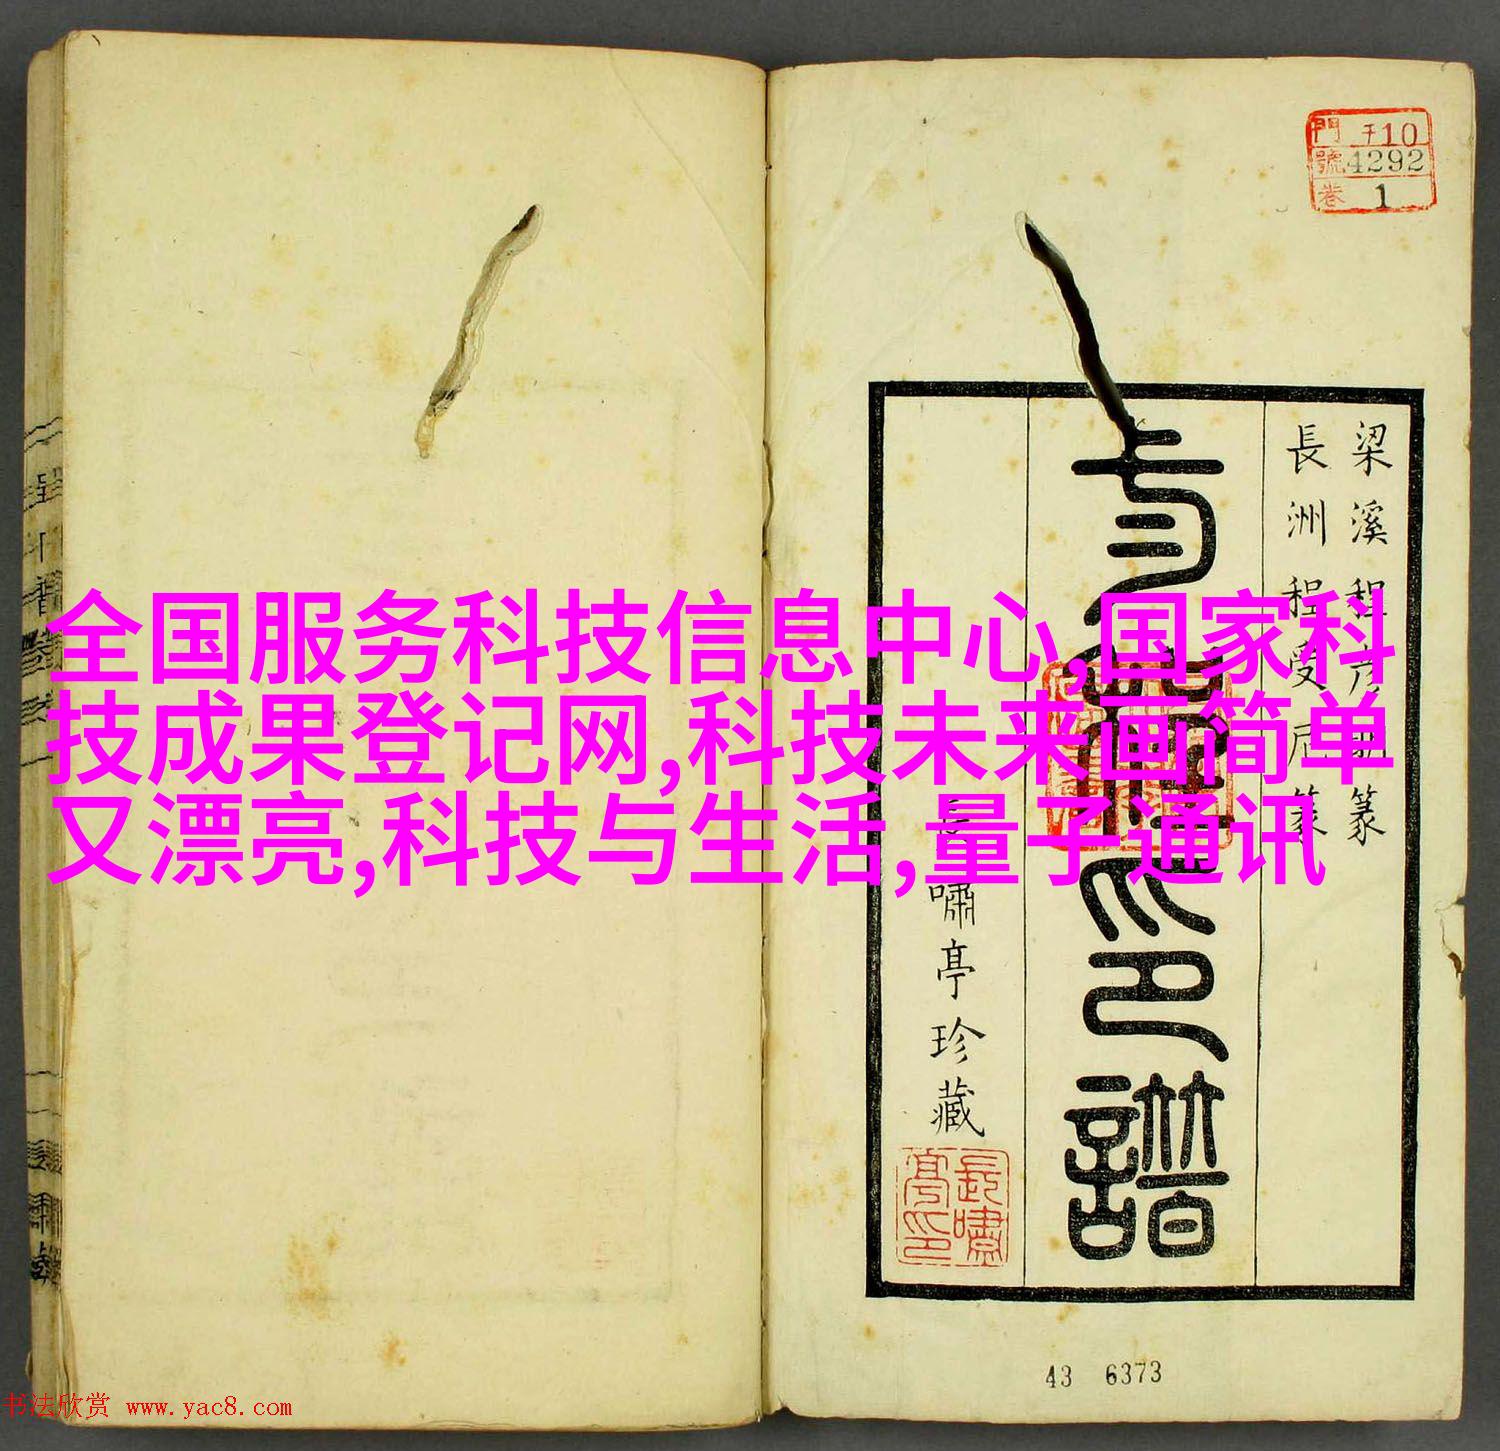 門 千10
號 4292
卷 1
梁溪程彦
篆
長洲程受尼篆
印譜
嘯亭珍藏
長嘯亭印
全国服务科技信息中心,国家科
技成果登记网,科技未来画简单
又漂亮,科技与生活,量子通讯
43 6373
书法欣赏 www.yac8.com